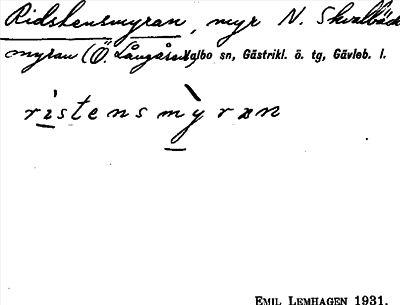 Ridstensmyran, myr N. Skvallbäck
myran (Ö. Långåsen) Valbo sn, Gästrikl. ö. tg, Gävleb. l.
ristensmỳran
EMIL LEMHAGEN 1931.